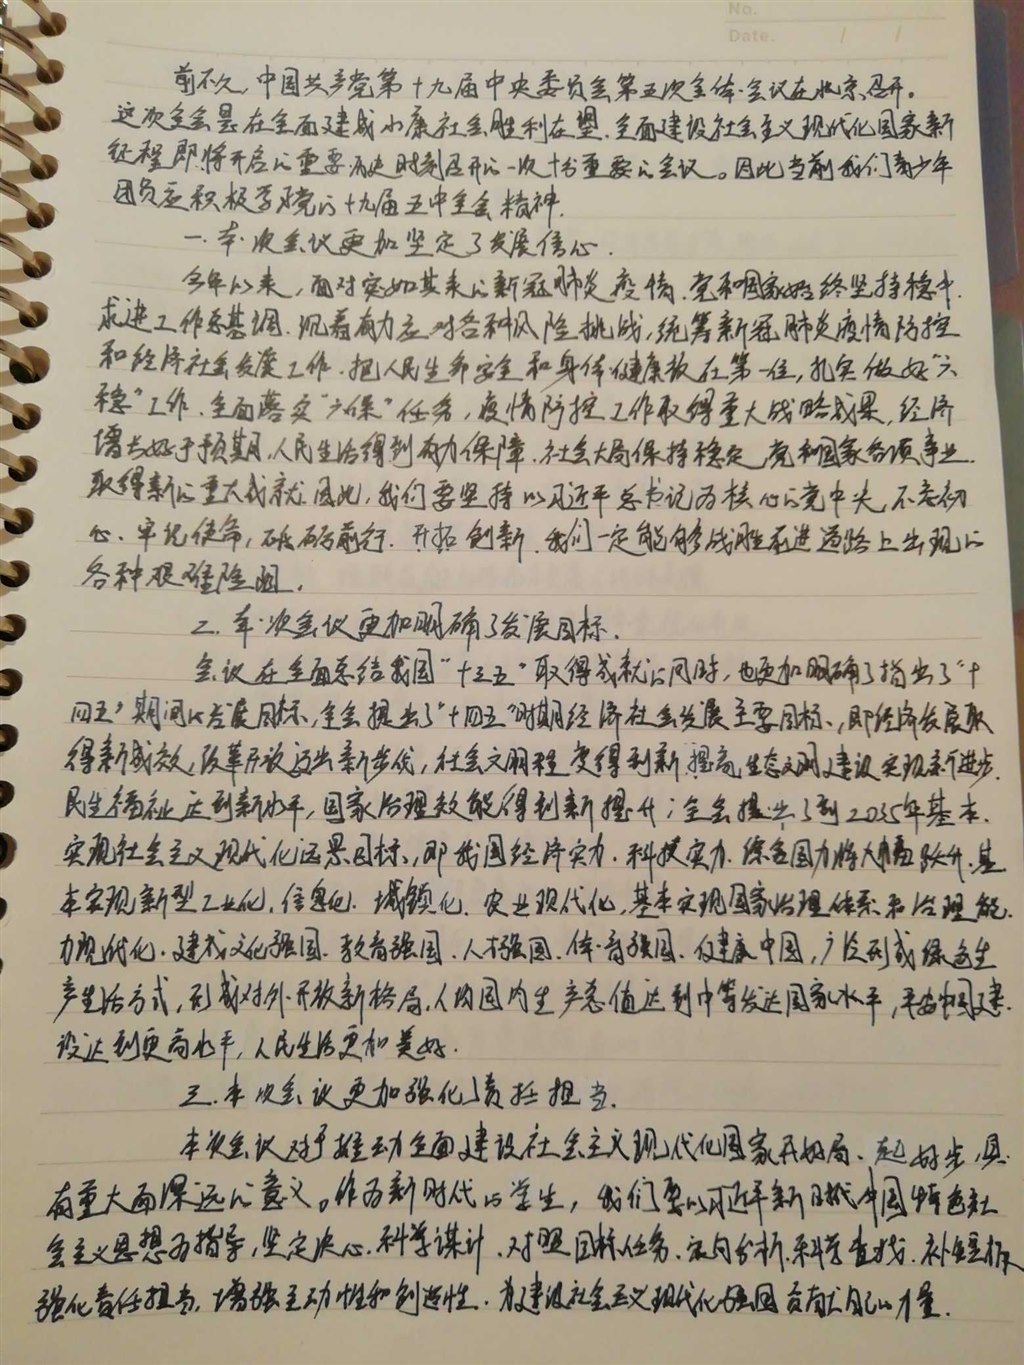 No.
Date. / /
前不久,中国共产党第十九届中央委员会第五次全体会议在北京召开。
这次全会是在全面建成小康社会胜利在望、全面建设社会主义现代化国家新
征程即将开启的重要历史时刻召开的一次十分重要的会议。因此当前我们青少年
团员应积极学习党的十九届五中全会精神.
一.本次会议更加坚定了发展信心.
今年以来,面对突如其来的新冠肺炎疫情.党和国家始终坚持稳中
求进工作总基调.沉着有力应对各种风险挑战,统筹新冠肺炎疫情防控
和经济社会发展工作.把人民生命安全和身体健康放在第一位,扎实做好“六
稳”工作.全面落实“六保”任务,疫情防控工作取得重大战略成果,经济
增长好于预期,人民生活得到有力保障.社会大局保持稳定,党和国家各项事业
取得新的重大成就.因此,我们要坚持以习近平总书记为核心的党中央,不忘初
心、牢记使命,砥砺前行.开拓创新.我们一定能够战胜前进道路上出现的
各种艰难险阻.
二.本次会议更加明确了发展目标.
会议在全面总结我国“十三五”取得成就的同时,也更加明确了指出了“十
四五”期间的发展目标,全会提出了“十四五”时期经济社会发展主要目标,即经济发展取
得新成效,改革开放迈出新步伐,社会文明程度得到新提高,生态文明建设实现新进步.
民生福祉达到新水平,国家治理效能得到新提升;全会提出了到2035年基本
实现社会主义现代化远景目标,即我国经济实力.科技实力.综合国力将大幅跃升.基
本实现新型工业化.信息化.城镇化.农业现代化,基本实现国家治理体系和治理能
力现代化.建成文化强国.教育强国.人才强国.体育强国.健康中国,广泛形成绿色生
产生活方式,形成对外开放新格局,人均国内生产总值达到中等发达国家水平,平安中国建
设达到更高水平,人民生活更加美好.
三.本次会议更加强化了责任担当.
本次会议对于推动全面建设社会主义现代化国家开好局、起好步,具
有重大而深远的意义。作为新时代的学生,我们要以习近平新时代中国特色社
会主义思想为指导,坚定决心.科学谋计.对照目标任务.定向分析.科学查找.补短板
强化责任担当.增强主动性和创造性.为建设社会主义现代化强国贡献自己的力量.